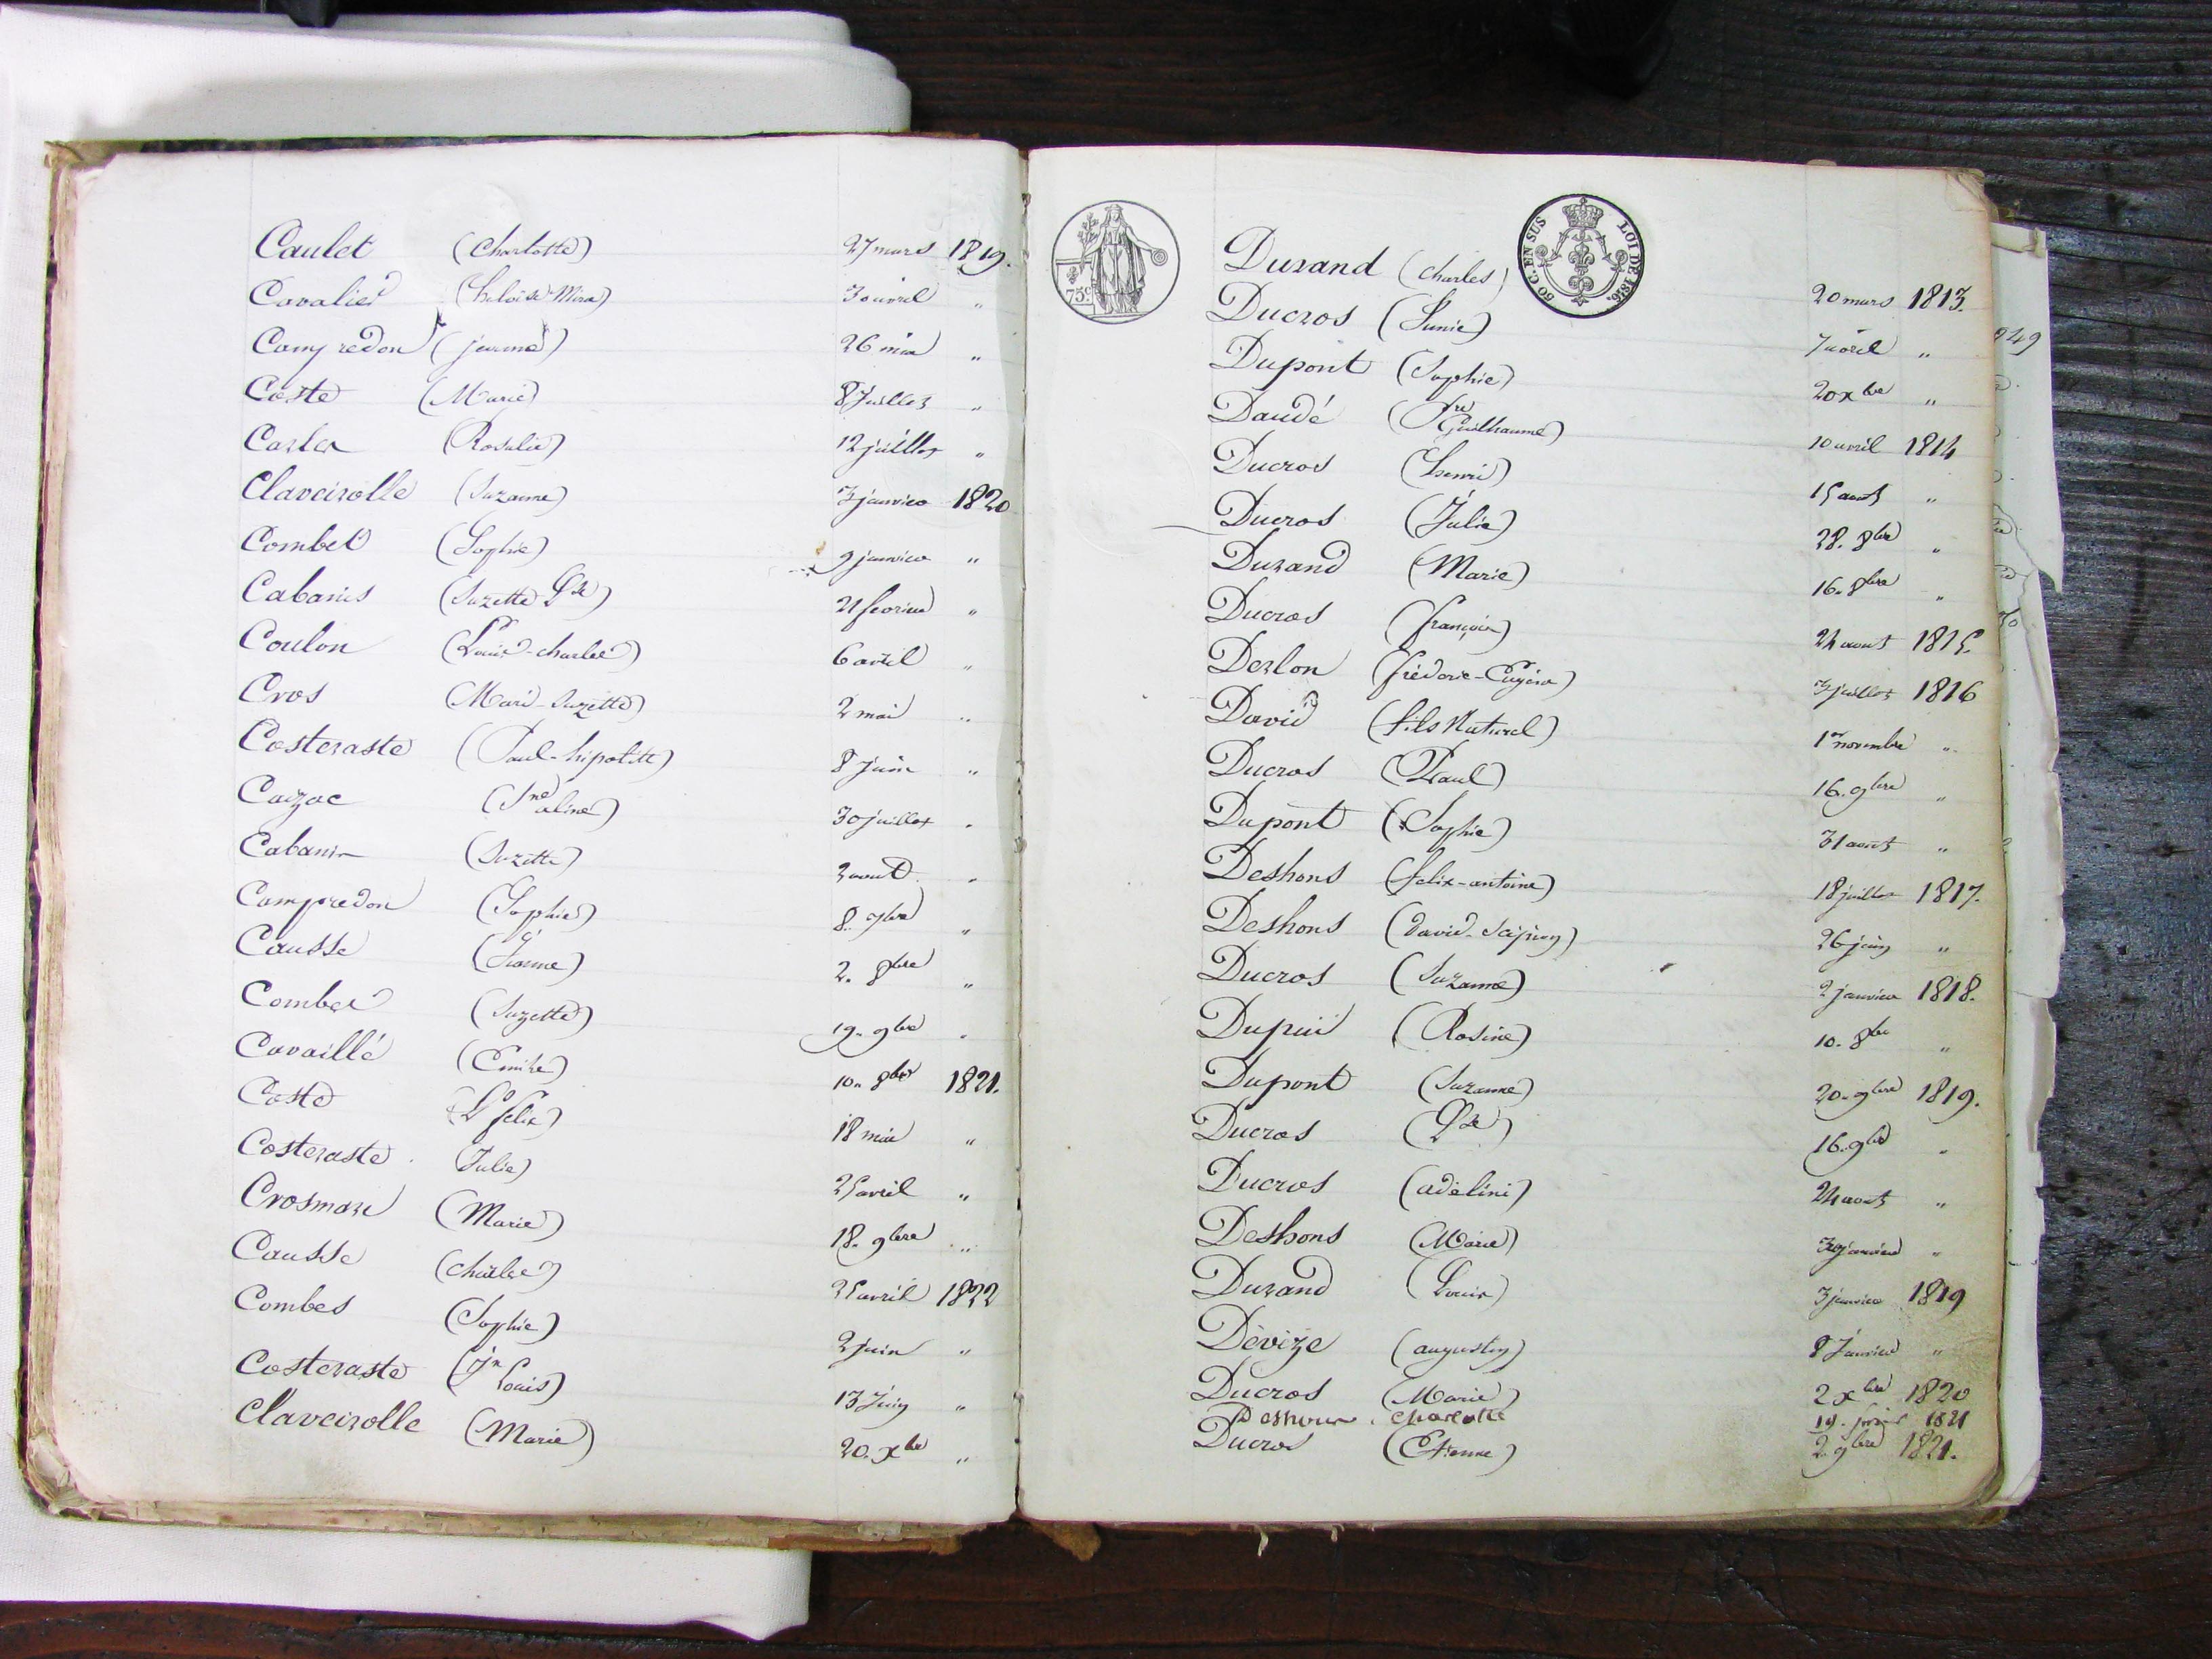 Caulet (Charlotte) 27 mars 1819.
Cavalier 3 avril "
Campredon (jeanne) 26 mai "
Coste (Marie) 8 Juillet "
(Rosalie) 12 juillet "
Claveirolle (Suzanne) 3 janvier 1820
Combet (Sophie) 9 janvier "
Cabanis (Suzette Lse) 21 fevrier "
Coulon (Louis-charles) 6 avril "
Cros (Marie-Suzette) 2 mai "
Costeraste (Paul-hipolitte) 8 Juin "
Cazac (Jne aline) 30 juillet "
Cabanis (Suzette) aout "
Campredon (Sophie) 8. 9bre "
Causse 2. 8bre "
Combes (Suzette) 19. 9bre "
Cavaillé (Emile) 10. 8bre 1821.
Coste (Ls felix) 18 mai "
Costeraste (Julie) 25 avril "
(Marie) 18. 9bre "
Causse (charles) 25 avril 1822
Combes (Sophie) 2 juin "
Costeraste (Jn Louis) 13 Juin "
Claveirolle (Marie) 20. Xbre "
75c
50 C. EN SUS
LOI DE 1816.
949
Durand (Charles) 20 mars 1813.
Ducros 7 avril "
Dupont (Sophie) 20 xbre "
Daudé (Guilhaume) 10 avril 1814
Ducros (henri) 15 aout "
Ducros (Julie) 28. 8bre "
Durand (Marie) 16. 8bre "
Ducros (françois) 24 aout 1815.
Derlon (fréderic-Eugène) 3 juillet 1816
David (fils Naturel) 1er novembre "
Ducros (Paul) 16. 9bre "
Dupont (Sophie) 31 aout "
Deshons (felix-antoine) 18 juillet 1817.
Deshons (david-Scipion) 26 juin "
Ducros (Suzanne) 2 janvier 1818.
Dupui (Rosine) 10. 8bre "
Dupont (Suzanne) 20. 9bre 1819.
Ducros (Lse) 16. 9bre "
Ducros (adelini) 24 aout "
Deshons (Marie) janvier "
Durand (Louis) 3 janvier 1819
Dévize (augustin) 8 Janvier "
Ducros (Marie) 2 xbre 1820
Deshons Charlotte 19. 1821
Ducros (Etienne) 2. 9bre 1821.